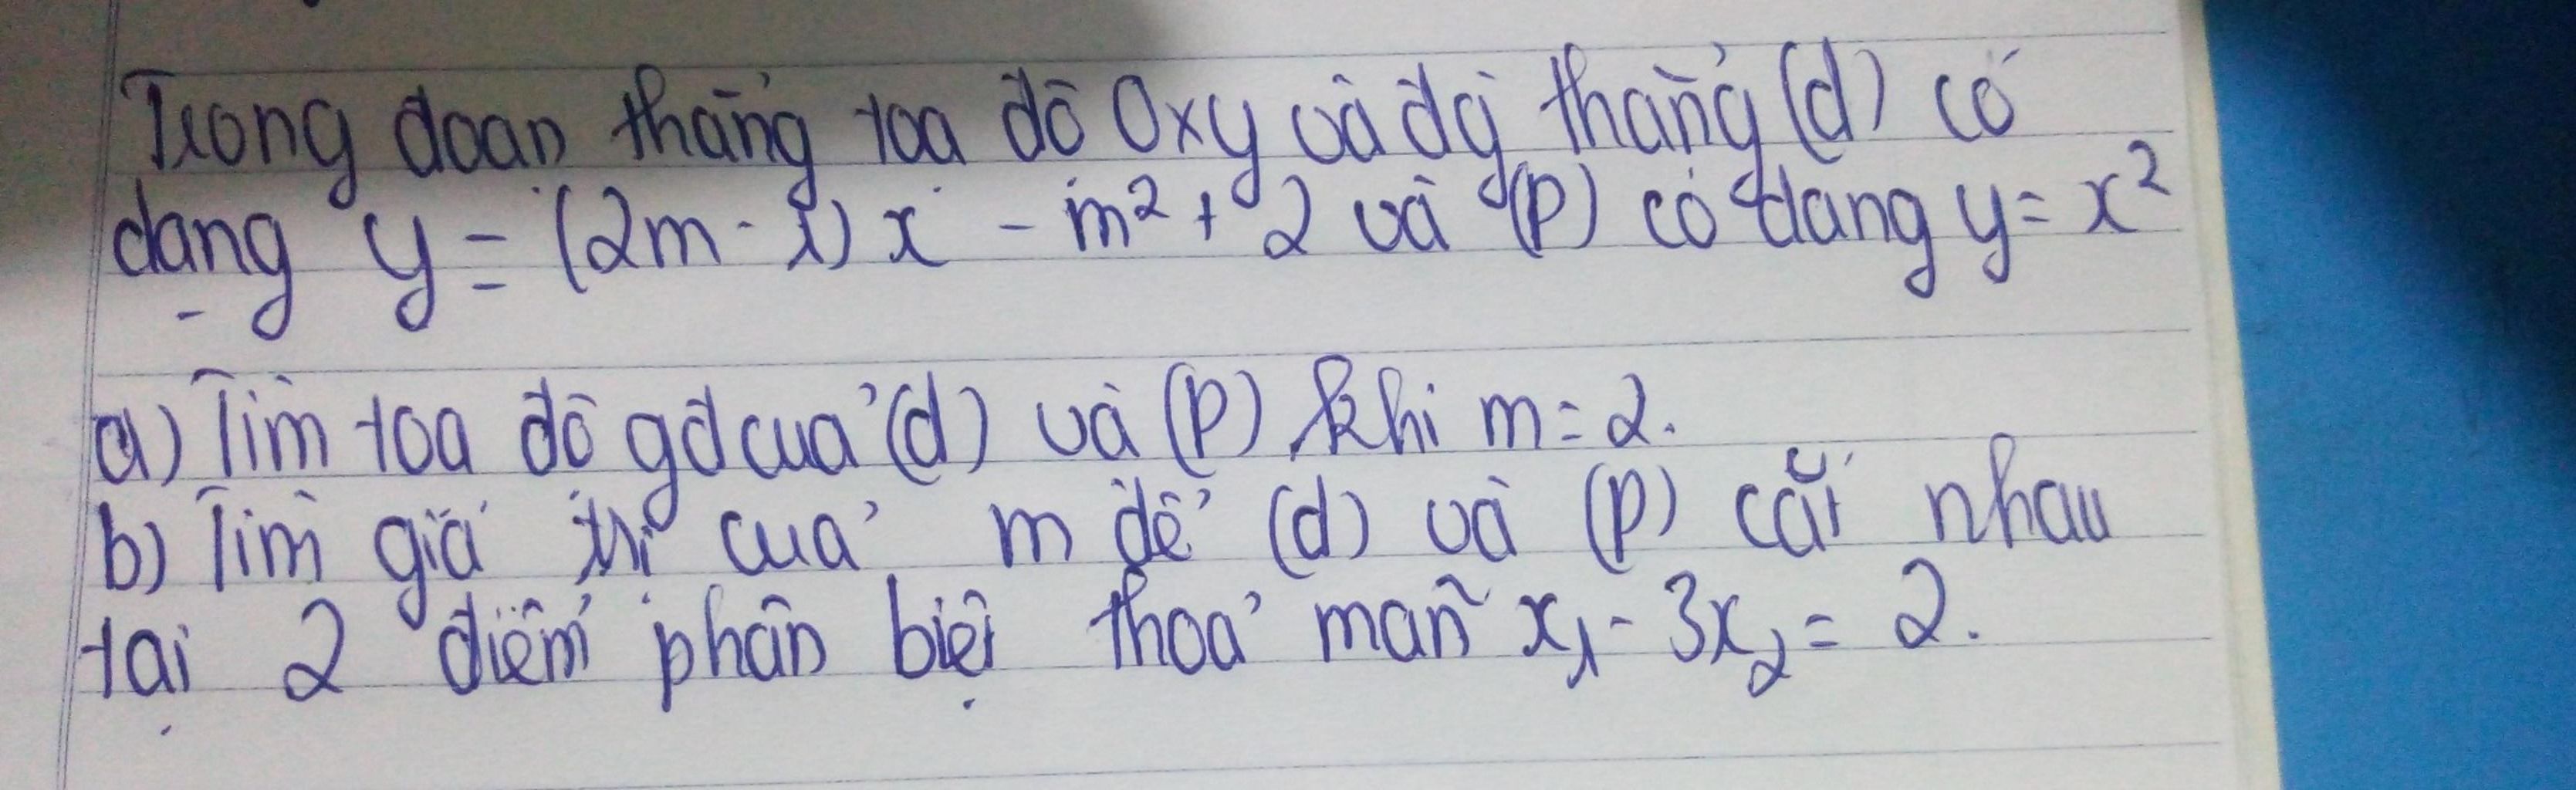 Trong đoan thẳng toa độ Oxy và đg thẳng (d) có
dạng y = (2m - 1) x - m² + 2 và (P) có dạng y = x²
a) Tìm toa độ gđ của (d) và (P) khi m = 2.
b) Tìm giá trị của m để (d) và (P) cắt nhau
tại 2 điểm phân biệt thoả mãn x₁ - 3x₂ = 2.